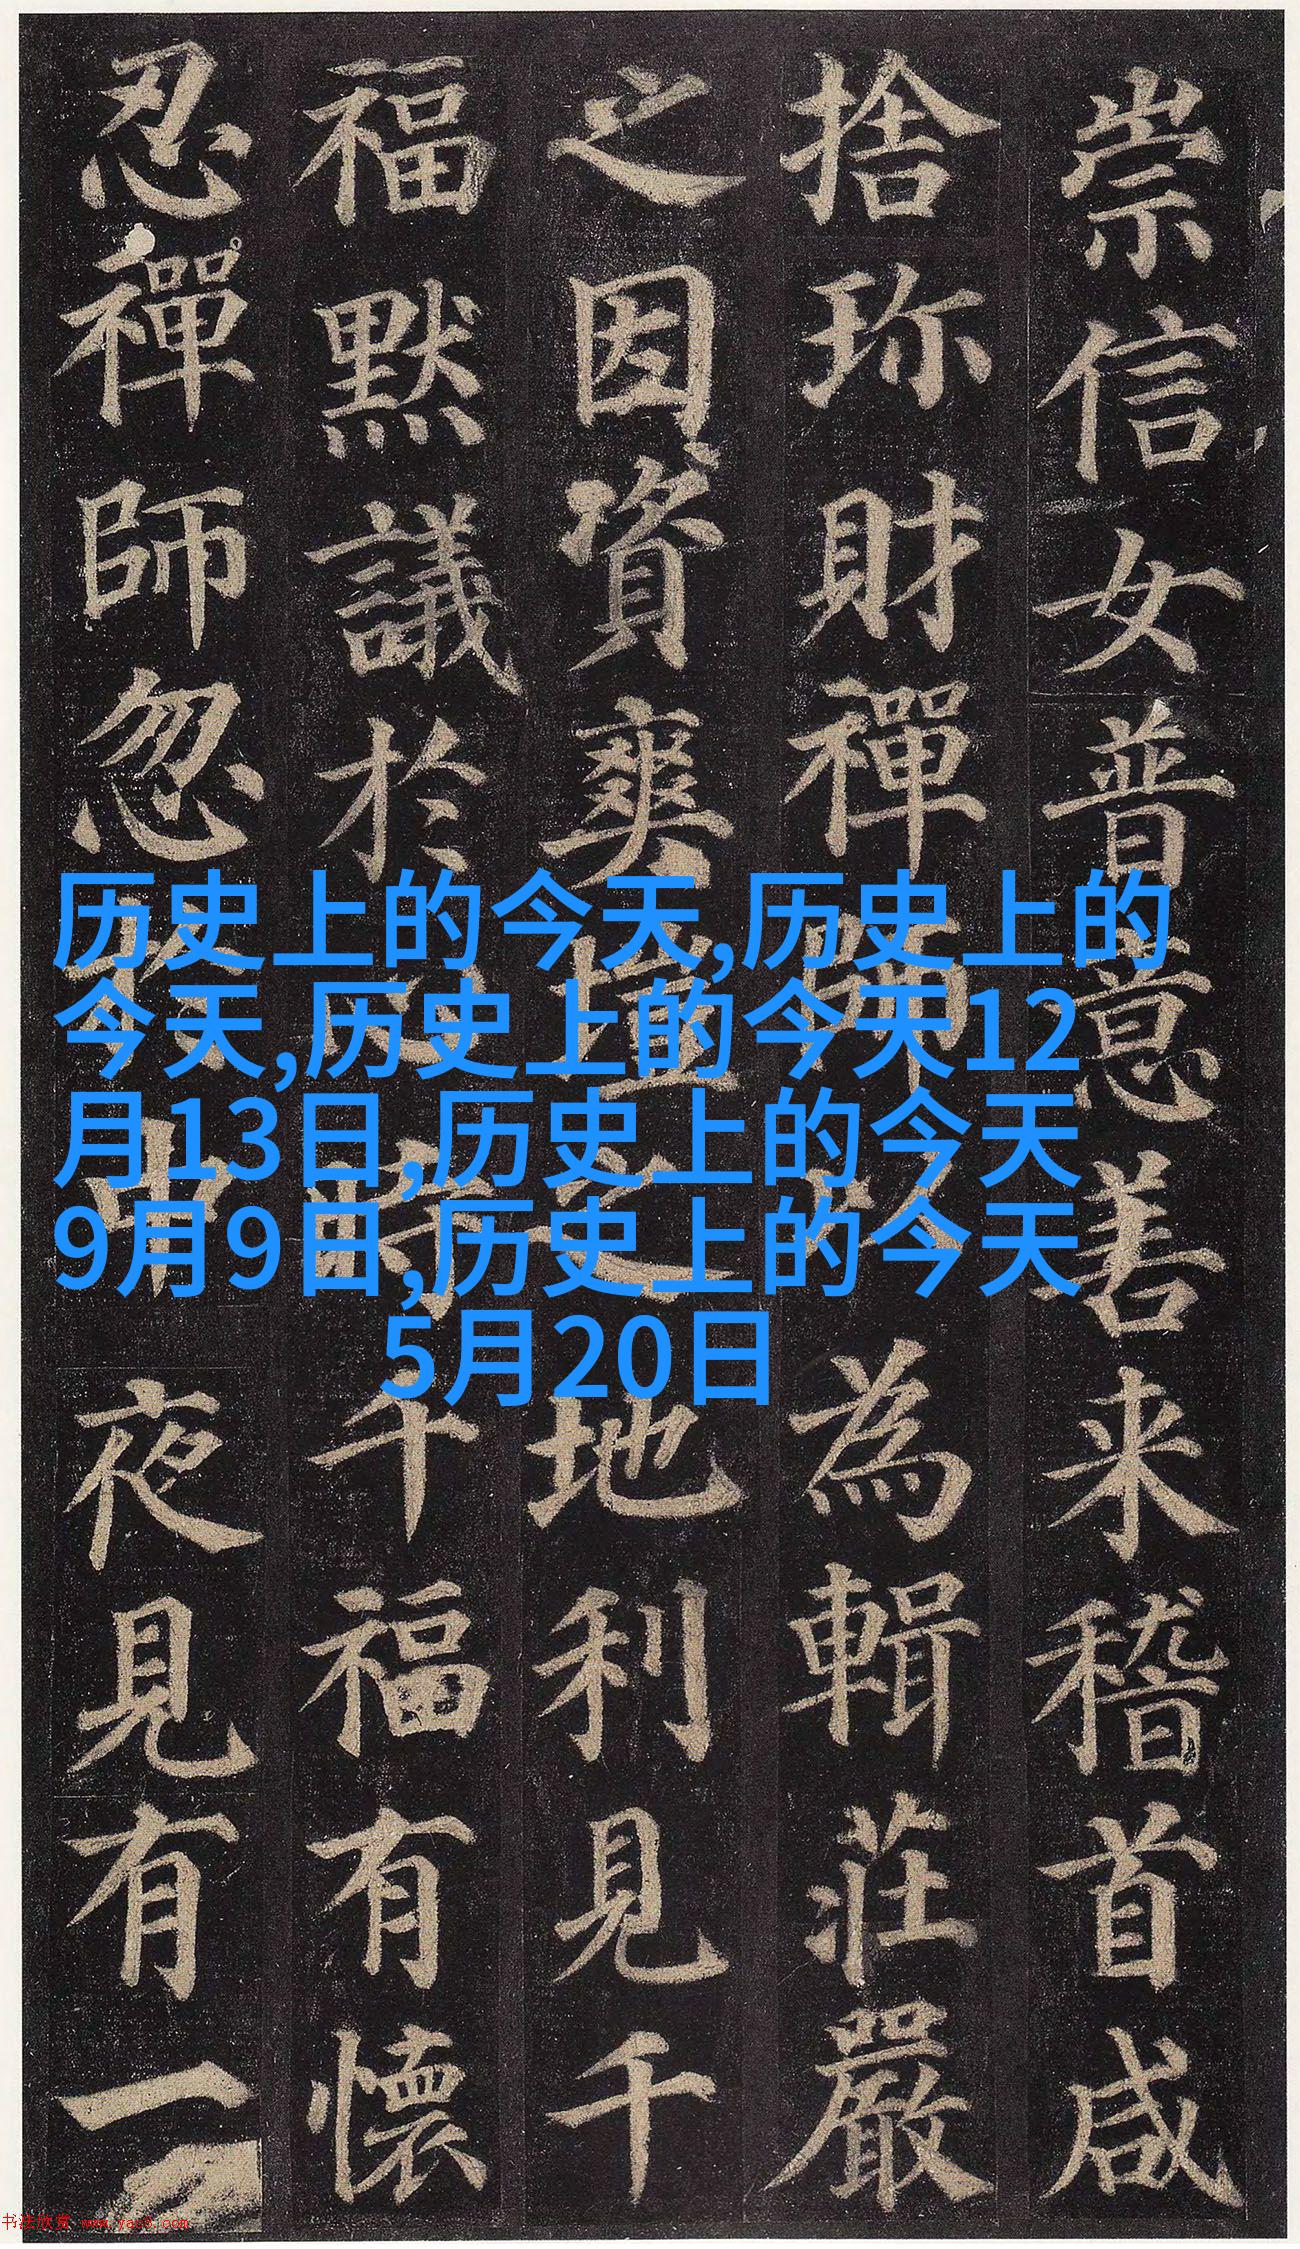 崇信女普意善来稽首咸
捨珎財禪師以為輯莊嚴
之因資爽塏之地利見千
福默議於心時千福有懷
忍禪師忽於中夜見有一
历史上的今天,历史上的
今天,历史上的今天12
月13日,历史上的今天
9月9日,历史上的今天
5月20日
书法欣赏 www.yac8.com